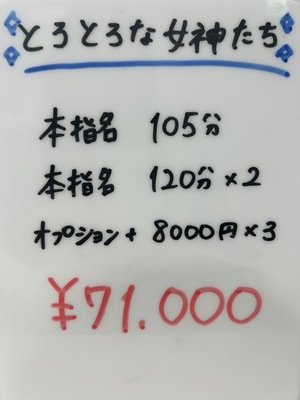 とろとろな女神たち
本指名 105分
本指名 120分×2
オプション+ 8000円×3
¥71.000